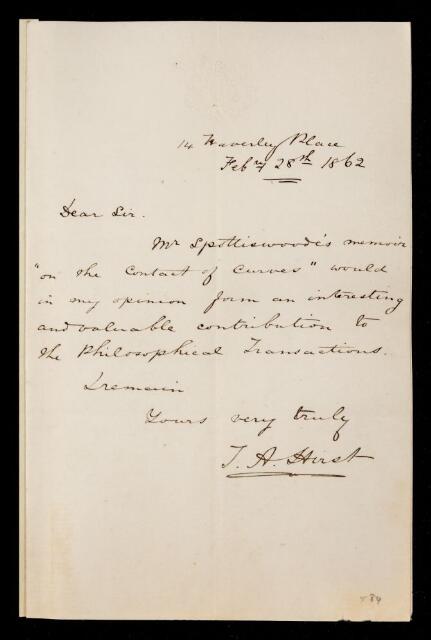 14 Waverley Place
Feby 28th 1862
Dear Sir.
Mr Spottiswoode's memoir
"on the Contact of Curves" would
in my opinion form an interesting
and valuable contribution to
the Philosophical Transactions.
I remain
Yours very truly
T. A. Hirst